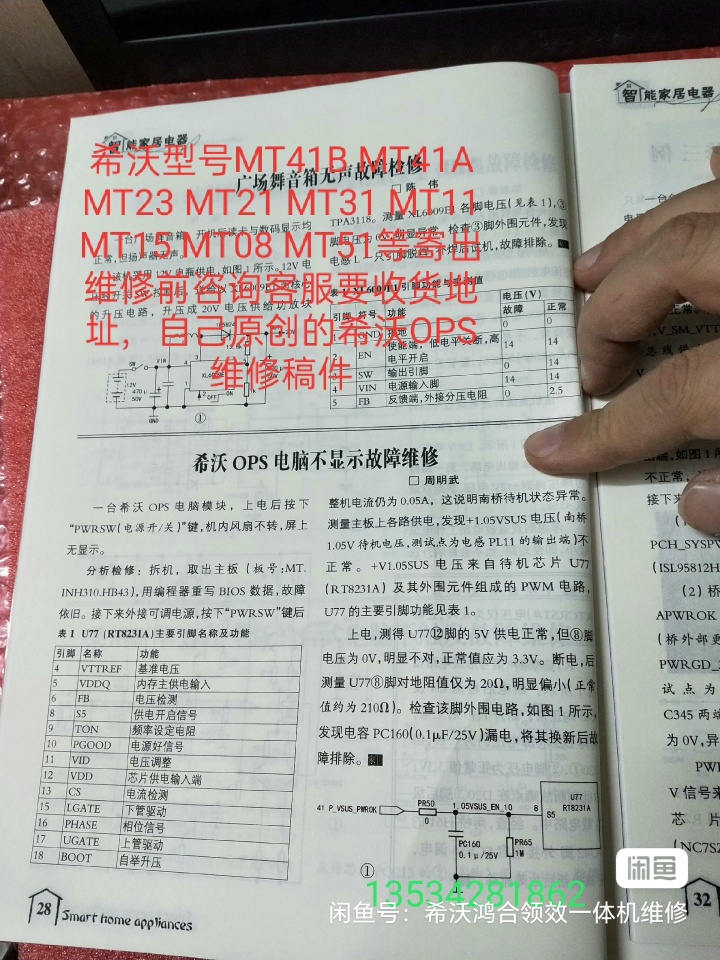 智能家居电器
希沃型号MT41B MT41A
MT23 MT21 MT31 MT11
维修可咨询客服要收货地
址，自己原创的希沃OPS
维修稿件
广场舞音箱无声故障检修
□ 陈 伟
TPA3118。测量XL6009E1各脚电压(见表1),③
电感L一只引脚脱焊,补焊后试机,故障排除。
的升压电路，升压成20V电压供给功放块
引脚 符号 功能 电压(V)
故障 正常
1 GND 接地 0 0
2 EN 使能端，低电平关断,高
电平开启 14 14
3 SW 输出引脚 14 14
4 VIN 电源输入脚 14 14
5 FB 反馈端,外接分压电阻 0 2.5
SW
VIN
12V
470μ
50V
GND
ON
OFF
①
希沃 OPS 电脑不显示故障维修
□ 周明武
一台希沃 OPS 电脑模块，上电后按下
“PWRSW(电源开/关)”键,机内风扇不转,屏上
无显示。
分析检修：拆机，取出主板 (板号:MT.
INH310.HB43),用编程器重写 BIOS 数据,故障
依旧。接下来外接可调电源,按下“PWRSW”键后
表 1 U77 (RT8231A)主要引脚名称及功能
引脚 名称 功能
4 VTTREF 基准电压
5 VDDQ 内存主供电输入
6 FB 电压检测
8 S5 供电开启信号
9 TON 频率设定电阻
10 PGOOD 电源好信号
11 VID 电压调整
12 VDD 芯片供电输入端
13 CS 电流检测
15 LGATE 下管驱动
16 PHASE 相位信号
17 UGATE 上管驱动
18 BOOT 自举升压
整机电流仍为 0.05A，这说明南桥待机状态异常。
测量主板上各路供电,发现+1.05VSUS 电压(南桥
1.05V 待机电压,测试点为电感 PL11 的输出端)不
正常。+V1.05SUS 电压来自待机芯片 U77
(RT8231A) 及其外围元件组成的 PWM 电路,
U77 的主要引脚功能见表 1。
上电,测得 U77⑫脚的 5V 供电正常,但⑧脚
电压为 0V,明显不对,正常值应为 3.3V。断电,后
测量 U77⑧脚对地阻值仅为 20Ω,明显偏小(正常
值约为 210Ω)。检查该脚外围电路,如图 1 所示,
发现电容 PC160(0.1μF/25V)漏电,将其换新后故
障排除。
41 P_VSUS_PWROK
PR50
0
1.05VSUS_EN_10
8
S5
U77
RT8231A
PC160
0.1μ/25V
PR65
1M
①
28 Smart home appliances
13534281862
闲鱼
闲鱼号：希沃鸿合领效一体机维修
智能家居电器
例
V_SM_VTT
如图1所
不正常
接下来
PCH_SYSPW
(ISL95812H
(2)桥
APWROK
(桥外部更
PWRGD_
试点为
C345 两端
为 0V,异
V 信号来
芯 片
(NC7SZ
32